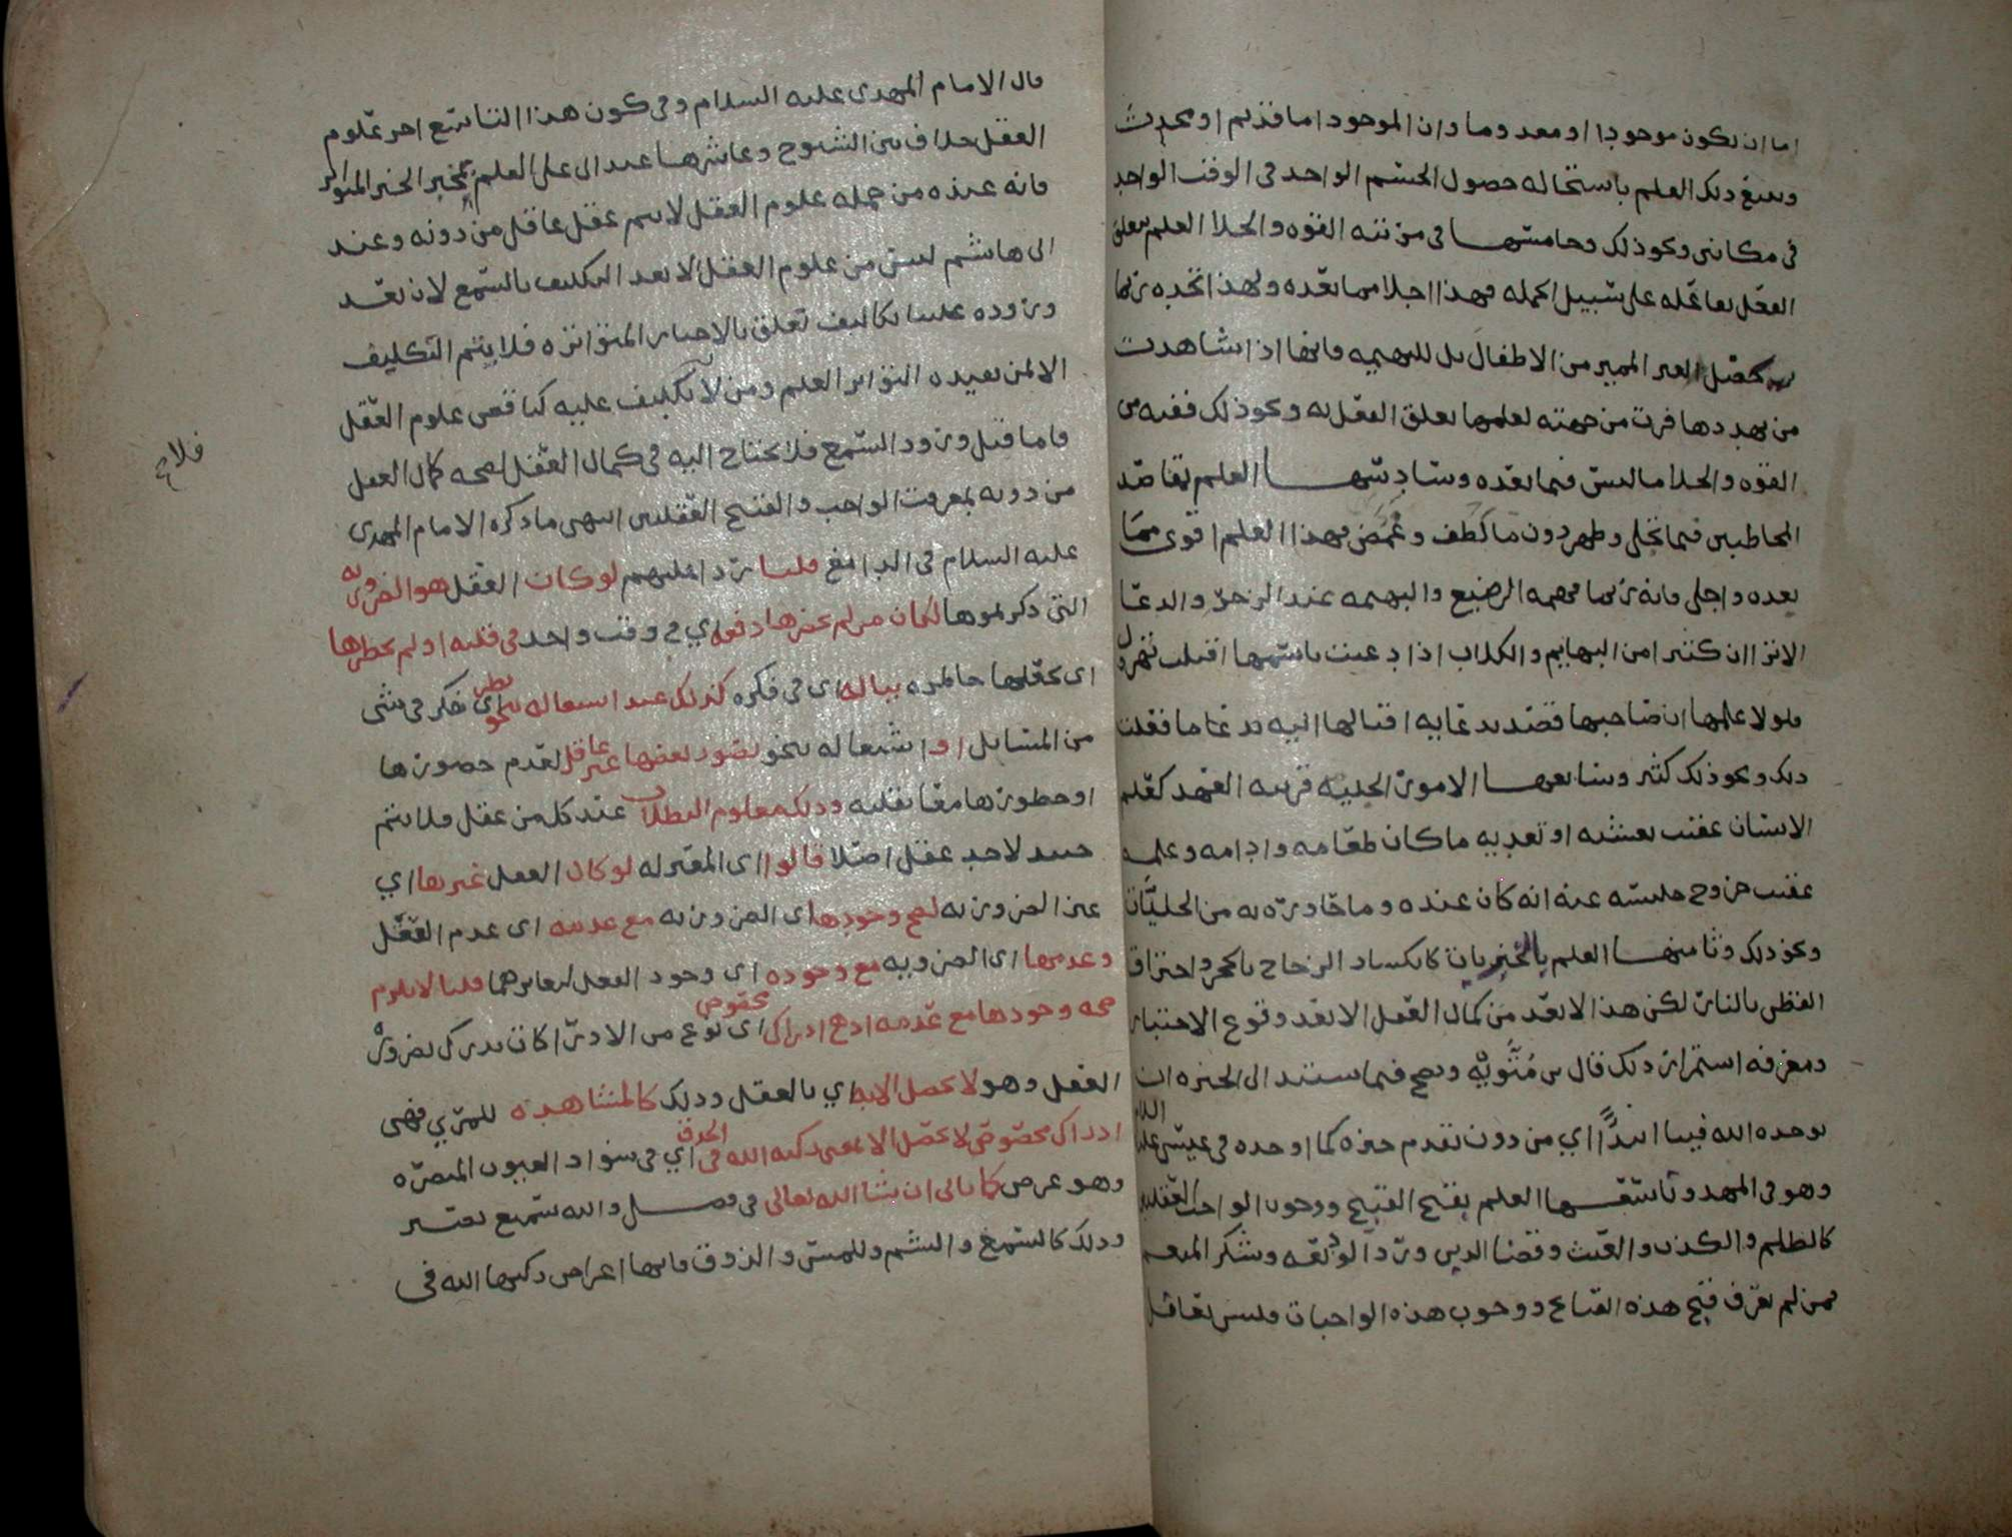 اما ان يكون موجودا او معدوما وان الموجود اما قديم او محدث
ويتبع ذلك العلم باستحاله حصول الجسم الواحد في الوقت الواحد
في مكانين ونحو ذلك وخامسها في مرتبته القوه والجلا العلم بتعلق
الفعل بفاعله على سبيل الجمله فهذا اجلا مما بعده ولهذا تجده ربما
يحصل لغير المميز من الاطفال بل للبهيمه فانها اذا شاهدت
من يهددها فرت من جهته لعلمها بتعلق الفعل به ونحو ذلك ففيه من
القوه والجلا ما ليس فيما بعده وسادسها العلم بمقاصد
المخاطبين فيما تجلى وظهر دون ما لطف وغمض فهذا العلم اقوى مما
بعده واجلى فانه ربما فهمه الرضيع والبهيمه عند الزجر والدعا
الا ترا ان كثيرا من البهايم والكلاب اذا دعيت باسمها اقبلت تهرول
فلولا علمها ان صاحبها قصد بدعايه اقبالها اليه بدعا ما فعلت
ذلك ونحو ذلك كثير وسابعها الامور الجليه قريبه العهد كعلم
الانسان عقيب تعشيه او تغديه ما كان طعامه وادامه وعلمه
عقيب خروج جليسه عنه انه كان عنده وما حاوره به من الجليات
ونحو ذلك وثامنها العلم بالخبريات كانكسار الزجاج بالحجر واحتراق
القطن بالنار لكن هذا لا يعد من كمال العقل الا بعد وقوع الاختبار
ومعرفه استمرار ذلك قال بن متويه ويصح فيما يستند الى الخبره ان
يوحده الله فينا ابتدا اي من دون تقدم خبره كما اوجده في عيسى عليه السلام
وهو في المهد وتاسعها العلم بقبح القبيح ووجوب الواجبات العقليه
كالظلم والكذب والعبث وقضا الدين ورد الوديعه وشكر المنعم
فمن لم يعرف قبح هذه القبايح ووجوب هذه الواجبات فليس بعاقل
قال الامام المهدي عليه السلام وفي كون هذا التاسع احر علوم
العقل خلاف بين الشيوح وعاشرها عند ابي علي العلم بمخبر الخبر المتواتر
فانه عنده من جمله علوم العقل لا يتم عقل عاقل من دونه وعند
ابي هاشم ليس من علوم العقل الا بعد التكليف بالسمع لان بعد
وروده علينا تكاليف تتعلق بالاخبار المتواتره فلا يتم التكليف
الا لمن يفيده التواتر العلم ومن لا تكليف عليه كناقص علوم العقل
فاما قبل ورود السمع فلا يحتاج اليه في كمال العقل لصحه كمال العقل
من دونه بمعرفت الواجب والقبيح العقليين انتهى ما ذكره الامام المهدي
عليه السلام في الدامغ قلنا ردا عليهم لو كان العقل هو الضروريه
التي ذكرتموها لكان من لم يخبرها دفعه اي في وقت واحد في قلبه او لم يخطرها
اي يجعلها خاطره بباله اي في فكره كذلك عند اشتغاله بنحو نظر اي فكر في شي
من المسايل او اشتغاله بنحو تصور بعضها غير عاقل لعدم حصورها
او خطورها معا بقلبه وذلك معلوم البطلان عند كل من عقل فلا يتم
حينيذ لاحد عقل اصلا قالوا اي المعتزله لو كان العقل غيرها اي
غير الضروريه لصح وجودها اي الضروريه مع عدمه اي عدم العقل
وعدمها اي الضروريه مع وجوده اي وجود العقل لتغايرهما قلنا لا يلزم
صحه وجودها مع عدمه اذ هي ادراك مخصوص اي نوع من الادراكات يدرك بضروره
العقل وهو لا يحصل الا به اي بالعقل وذلك كالمشاهده للمرئي فهي
ادراك مخصوص لا يحصل الا بمعنى ركبه الله في الحدق اي في سواد العيون المبصره
وهو عرض كما ياتي ان شا الله تعالى في فصل والله سميع بصير
وذلك كالسمع والشم وللمس والذوق فانها اعراض ركبها الله في
فلاح